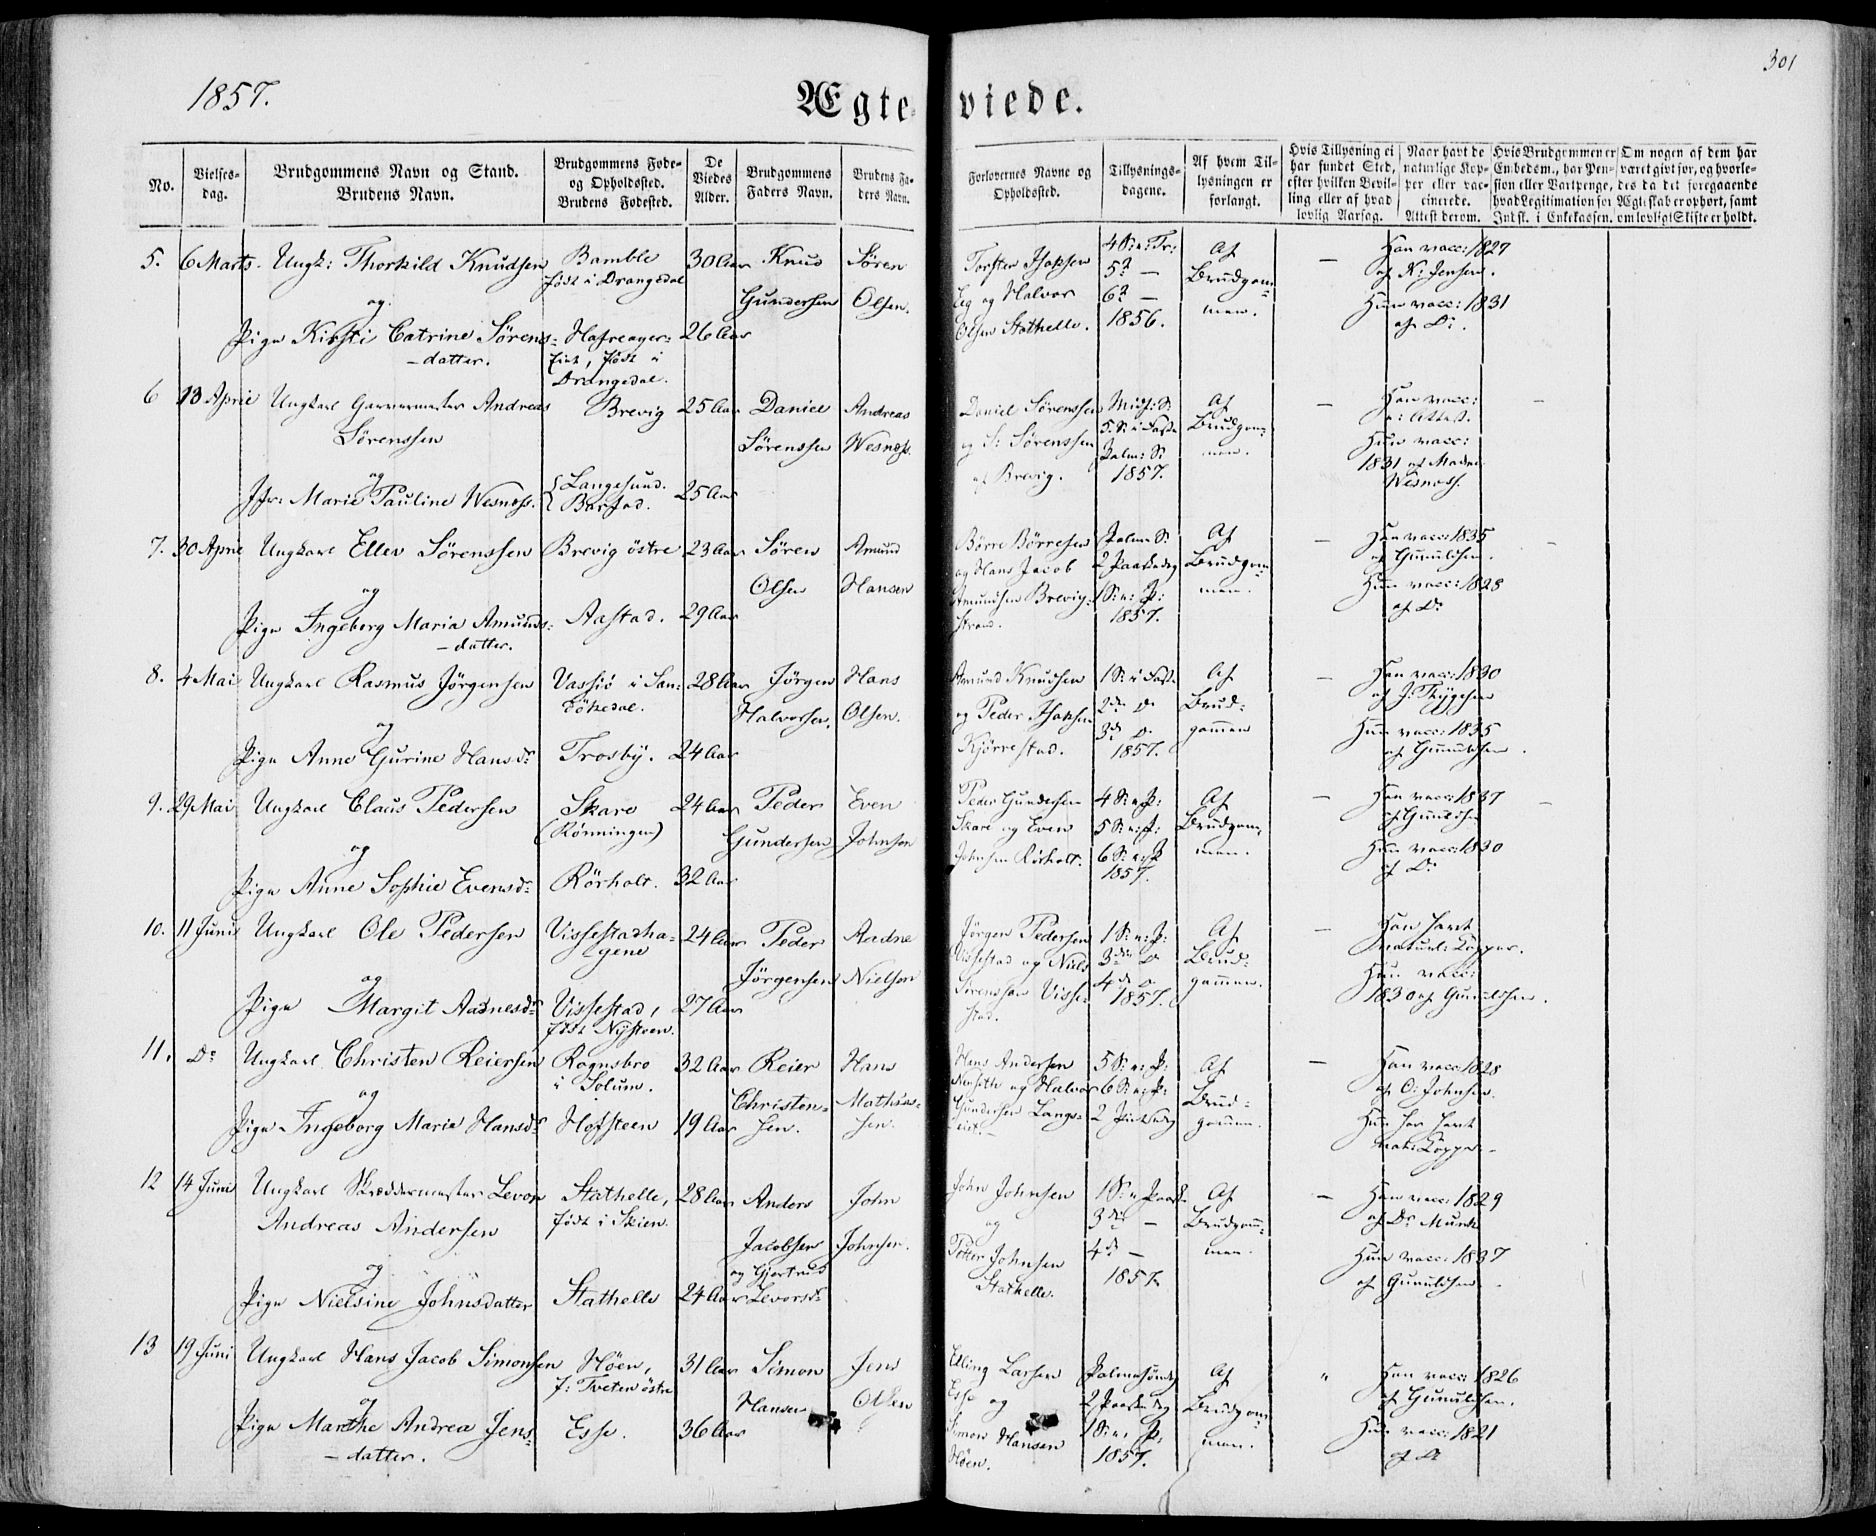 301
1857.
Ægteviede.
No.
Vielses-
dag.
Brudgommens Navn og Stand.
Brudens Navn.
Brudgommens Føde-
og Opholdssted.
Brudens Fødested.
De
Viedes
Alder.
Brudgommens
Faders Navn.
Brudens Fa-
ders Navn.
Forlovernes Navne og
Opholdssted.
Tillysnings-
dagene.
Af hvem Til-
lysningen er
forlangt.
Hvis Tillysning ei
har fundet Sted,
efter hvilken Bevil-
ling eller af hvad
lovlig Aarsag.
Naar havt de
naturlige Kop-
per eller vac-
cinerede.
Attest derom.
Hvis Brudgommen er
Embedsm., har Pen-
sion eller Vartpenge,
hvad Legitimation for
Indsk. i Enkekassen.
Om nogen af dem har
været gift før, og hvorle-
des da det foregaaende
Ægteskab er ophørt, samt
om lovligt Skifte er holdt.
5. 6 Marts. Ungk: Thorkild Knudsen
og
Pige Kirsti Catrine Sørens-
datter.
Bamble
født i Drangedal
30 Aar
26 Aar
født i
Drangedal.
Knud
Gundersen
Søren
Olsen.
Torsten
og Halvor
Olsen Stathelle.
4 S: e: Tr:
5te —
6te —
1856.
Af
Brudgom-
men.
—
Han vacc: 1827
af N: Jensen.
Hun vacc: 1831
af Do.
6 13 April Ungkarl Garvermester Andreas
Sørenssen
og
Jfr: Marie Pauline Wesnæss.
Brevig
Langesund.
25 Aar
25 Aar
Daniel
Sørenssen
Andreas
Wesnæss.
Daniel Sørenssen
og S: Sørenssen
af Brevig.
5. S: i Fast
Palm: S:
1857.
Af
Brudgom-
men.
—
Han vacc:
e: Attest.
Hun vacc:
1831 af Madm
Wesnæss.
7. 30 April Ungkarl Ellev Sørenssen
og
Pige Ingeborg Maria Amunds-
datter.
Brevig østre
Aastad.
23 Aar
29 Aar
Søren
Olsen
Amund
Hansen
Børre Børresen
og Hans Jacob
Amundsen Brevig-
strand.
Palme S:
2 Paaskedag
1 S: e: P:
1857.
Af
Brudgom-
men.
—
Han vacc: 1835
af Gunuldsen.
Hun vacc: 1828
af Do
8. 4 Mai Ungkarl Rasmus Jørgensen
og
Pige Anne Gurine Hansdr
Vassiø i San-
døkedal.
Trosby.
28 Aar
24 Aar
Jørgen
Halvorsen.
Hans
Olsen.
Amund Knudsen
og Peder
Kjørrestad.
1 S: i Fast
2den Do
3de Do
1857.
Af
Brud-
gommen
—
Han vacc: 1830
Hun vacc: 1835
af Gunuldsen.
9. 29 Mai Ungkarl Claus Pedersen
og
Pige Anne Sophie Evensdr
Skare
(Rønningen)
Rørholt.
24 Aar
32 Aar
Peder
Gundersen
Even
Johnsen
Peder Gundersen
Skare og Even
Johnsen Rørholt.
4 S: e: P:
5 S: e: P:
6 S: e: P
1857.
Af
Brudgom-
men.
—
Han vacc: 1837
af Gunuldsen
Hun vacc: 1830
af Do
10. 11 Juni Ungkarl Ole Pedersen
og
Pige Margit Aadnesdr
Vissestadha-
gene
Vissestad,
født Nysteen.
24 Aar
27 Aar
Peder
Jørgensen
Aadne
Nielsen
Jørgen Pedersen
Vissestad og Niels
Sørenssen Visse-
stad.
1 S: e: P:
3die Do
4de Do
1857.
Af
Brud-
gommen.
—
Han havt
naturl: Kopper.
Hun vacc:
1830 af Gunuldsen.
11. Do Ungkarl Christen Reiersen
og
Pige Ingeborg Marie Hansdr
Rognsbro
i Solum.
Hofsteen
32 Aar
19 Aar
Reier
Christen-
sen.
Hans
Mathias-
sen.
Hans Andersen
og Halvor
Gundersen Langs-
eie.
5 S: e: P:
6 S: e: P:
2 Pintsedag
Af
Brud-
gommen.
—
Han vacc: 1828
af O: Johnsen.
Hun har havt
nat: Kopper.
12 14 Juni Ungkarl Skræddermester Levor
Andreas Andersen
og
Pige Nielsine Johnsdatter
Stathelle,
født i Skien.
Stathelle
28 Aar
24 Aar
Anders
Jacobsen
og Gjertrud
Levorsdr
John
Johnsen.
John Johnsen
og
Petter Johnsen
Stathelle.
1 S: e Paask
3die —
4de —
1857.
Af
Brudgom-
men.
—
Han vacc: 1829
af Dr Munk
Hun vacc: 1837
af Gunuldsen.
13 19 Juni Ungkarl Hans Jacob Simonsen
og
Pige Marthe Andrea Jens-
datter.
Høen,
f: Tveten østre
Esse.
31 Aar
36 Aar
Simon
Hansen
Jens
Olsen
Elling Larsen
Esse og
Simon Hansen
Høen.
Palmesøndag
2 Paaskedag
1 S: e: P:
1857.
Af
Brudgom-
men.
"
Han vacc: 1826
af Gunuldsen.
Hun vacc: 1821
af Do